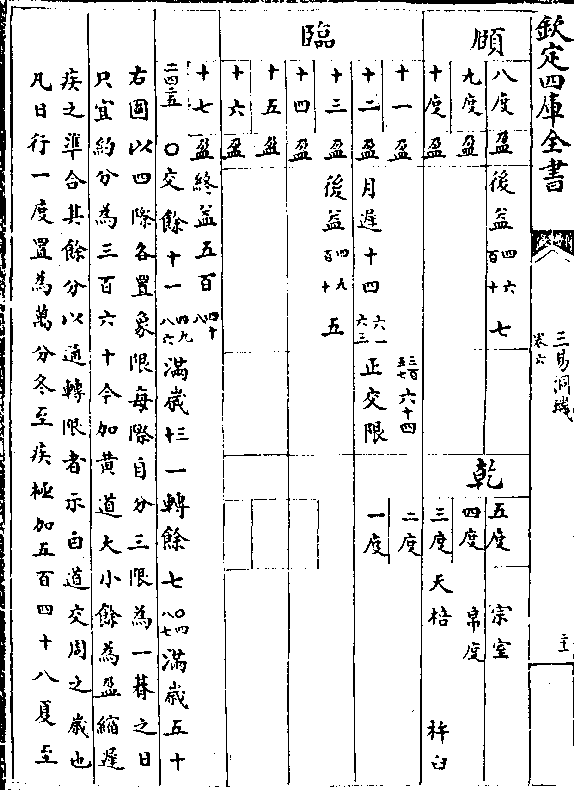 欽定四庫全書
三易洞璣
卷六
頤
八度 盈 後益 四百 六十 七
九度 盈
十度 盈
臨
十一 盈
十二 盈 月遲十四 六六 一三 正交限
十三 盈 後益 四百 九十 五
十四 盈
十五 盈
十六 盈
十七 盈 終益五百
六十四
乾
五度 宗室
四度 帛度
三度 天棓 杵臼
二度
一度
二四五 〇交餘十一 四九八六 滿歲十三一轉餘七 〇四八七 滿歲五十
右圖以四際各置象限每際自分三限為一朞之日
只宜約分為三百六十今加黃道大小餘為盈縮遲
疾之準合其餘分以通轉限者示白道交周之歲也
凡日行一度置為萬分冬至疾極加五百四十八夏至